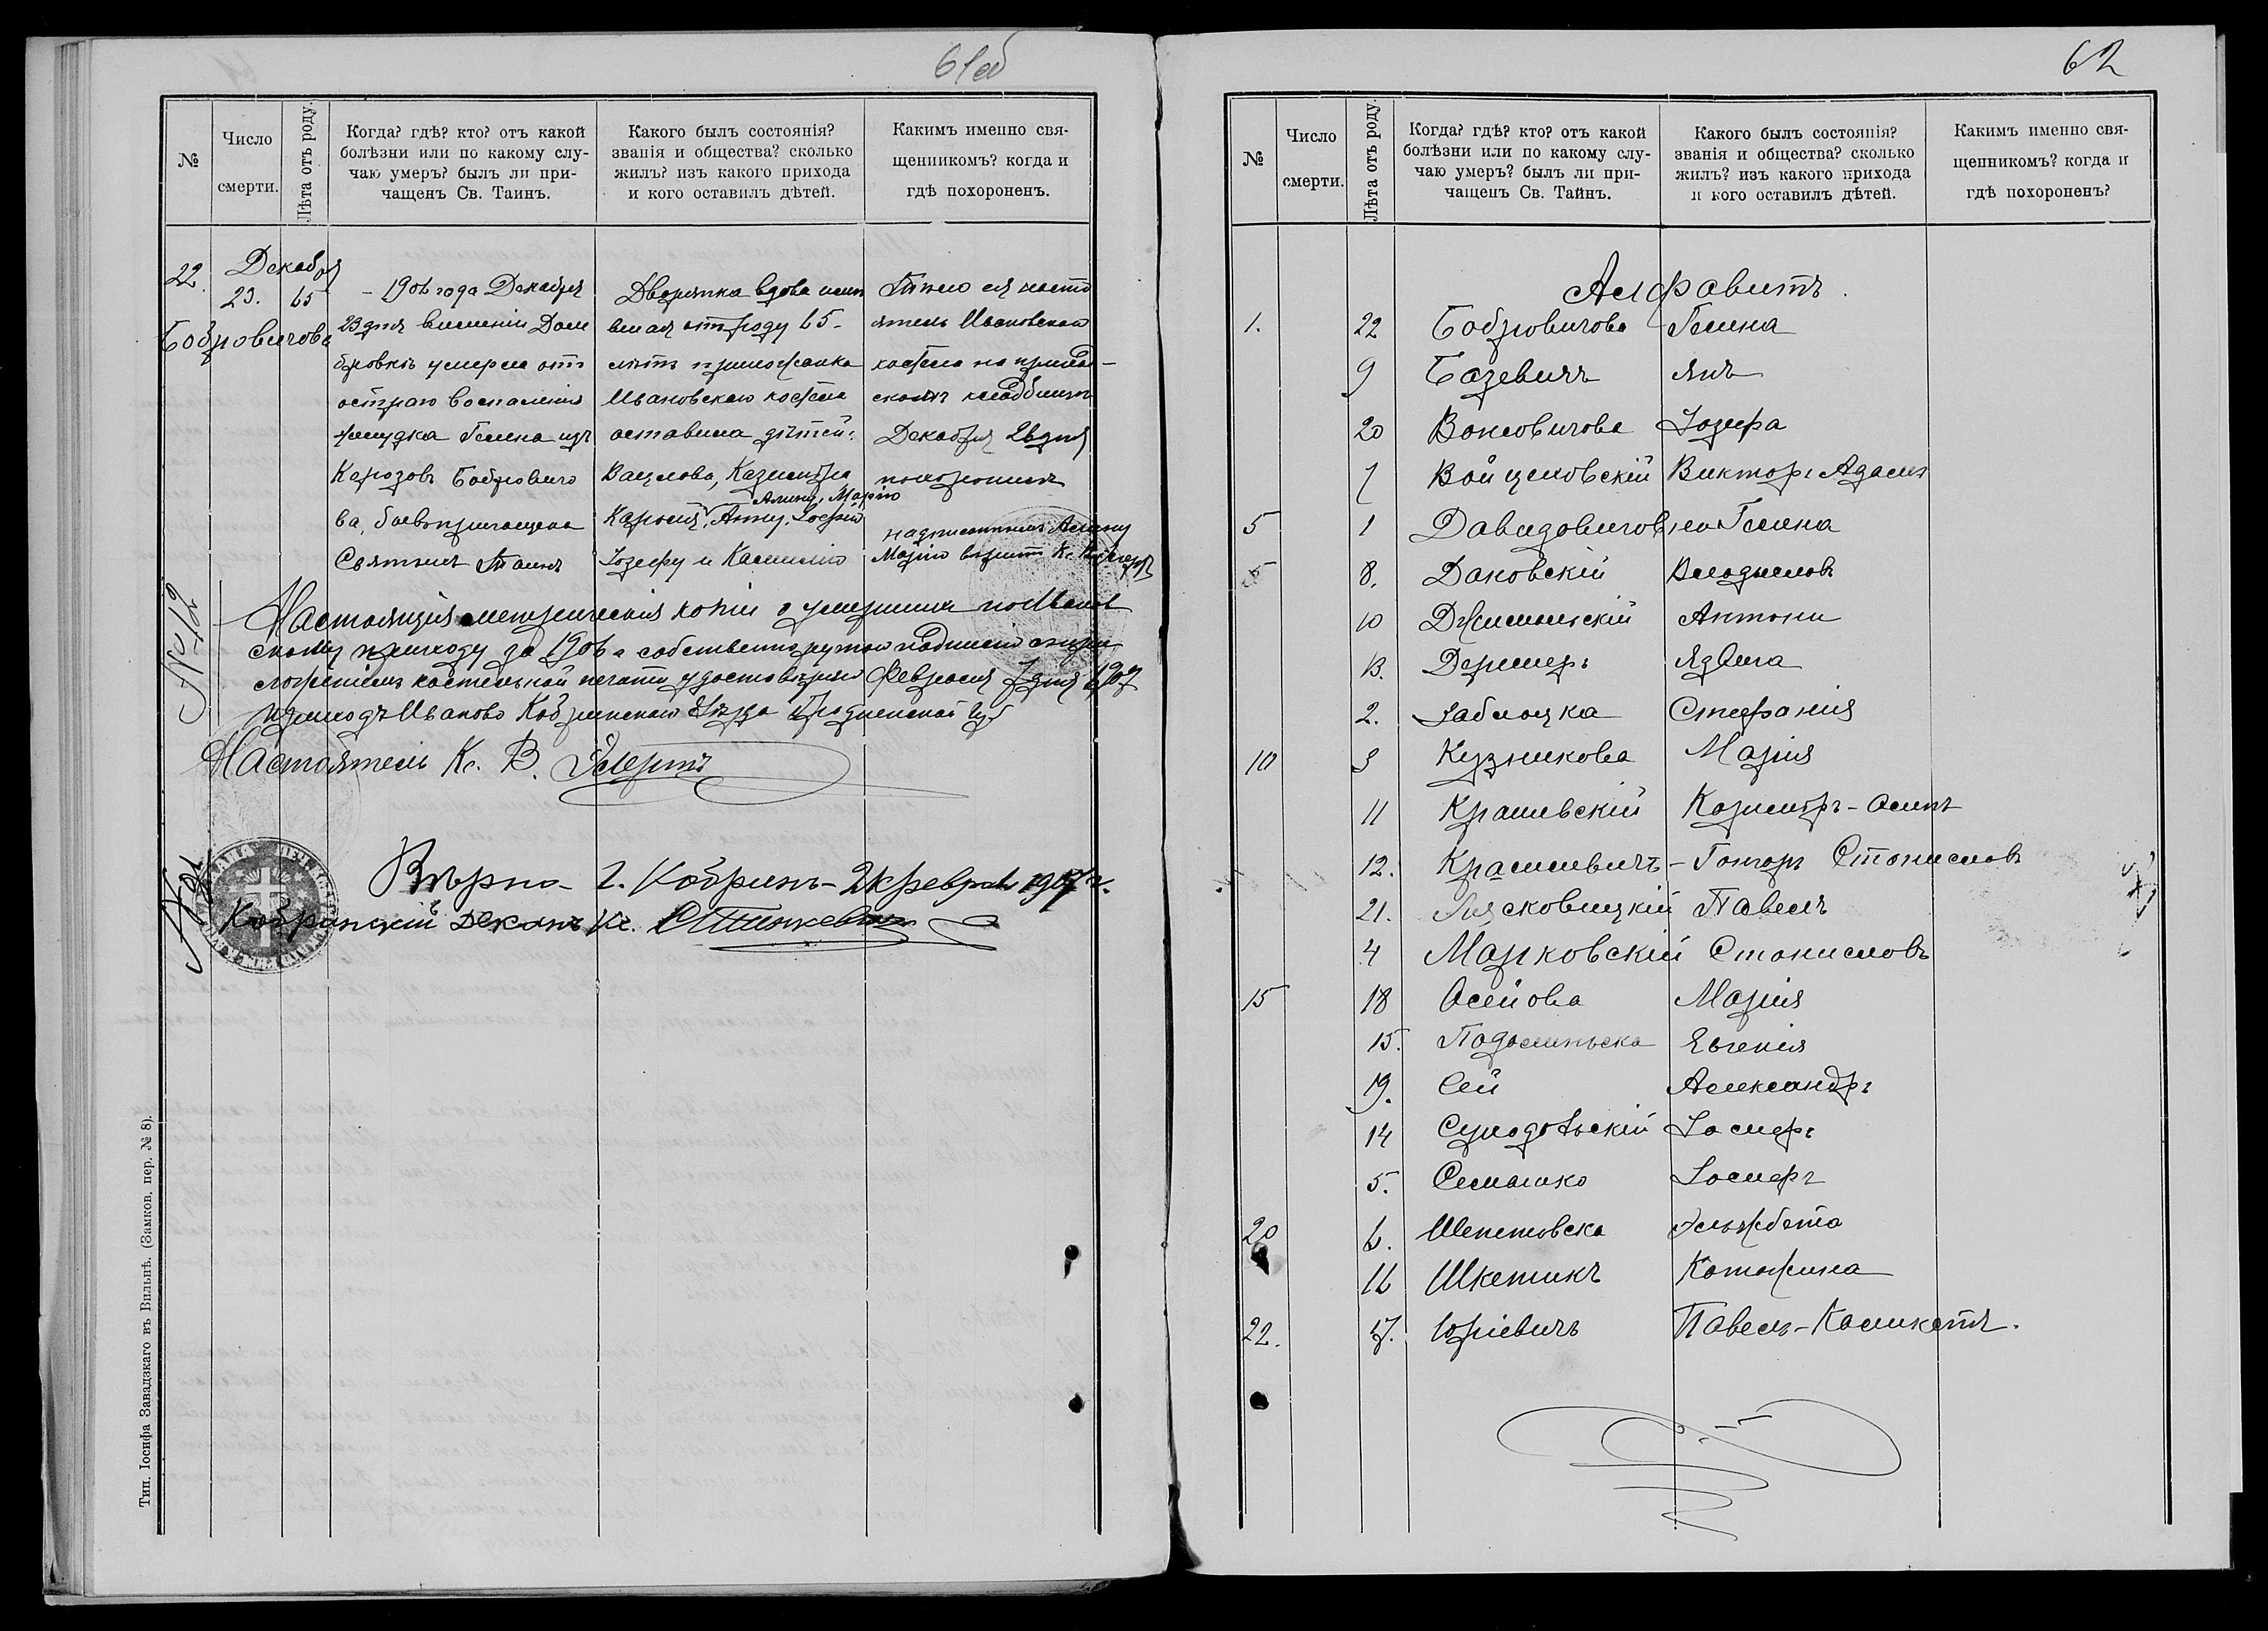 61об
№
Число смерти.
Лѣта отъ роду.
Когда? гдѣ? кто? отъ какой
болѣзни или по какому слу-
чаю умеръ? былъ ли при-
чащенъ Св. Таинъ.
Какого былъ состоянія?
званія и общества? сколько
жилъ? изъ какого прихода
и кого оставилъ дѣтей.
Какимъ именно свя-
щенникомъ? когда и
гдѣ похороненъ.
22.
Декабря
23.
65
Бобровичова
1906 года Декабря
23 дня въ имѣніи Дом
бровкѣ умерла отъ
остраго воспаленія
желудка Гелена изъ
Карозовъ Бобровичо
ва, была причащена
Святыхъ Таинъ
Дворянка вдова имѣ
вшая отъ роду 65-
лѣтъ прихожанка
Ивановскаго костела
оставила дѣтей:
Вацлова, Казимира
Алину, Марію
Кароля, Анну, Зофію
Юзефу и Камилію
Тѣло ея насто
ятель Ивановскаго
костела на приход-
скомъ кладбищѣ
Декабря 26 дня
похоронилъ
надписаннымъ Алину
Марію вѣрить Кс.
№ 12
Настоящія метрическія копіи о умершихъ по Иванов
скому приходу за 1906 г собственноручною подписью и при
ложеніемъ костельной печати удостовѣряю Февраля 7 дня 1907
приходъ Иваново Кобринскаго Уѣзда Гродненской Губ
Настоятель Кс. В.
Вѣрно – г. Кобринъ – февраля 1907 г.
Кобринскій Деканъ Кс.
Тип. Іосифа Завадзкаго въ Вильнѣ. (Замков. пер. № 8).
62
№
Число смерти.
Лѣта отъ роду.
Когда? гдѣ? кто? отъ какой
болѣзни или по какому слу-
чаю умеръ? былъ ли при-
чащенъ Св. Тайнъ.
Какого былъ состоянія?
званія и общества? сколько
жилъ? изъ какого прихода
и кого оставилъ дѣтей.
Какимъ именно свя-
щенникомъ? когда и
гдѣ похороненъ?
Алфавитъ.
1. 22 Бобровичова Гелена
9 Базевичъ Янъ
20 Вонсовичова Юзефа
7 Войцеховскій Викторъ Адамъ
5 1 Давидовичов Гелена
8. Даковскій Владиславъ
10 Антони
13. Ядвига
2. Заблоцка Стефанія
10 3 Кузникова Марія
11 Крашевскій Казимиръ-
12. Станиславъ
21. Лясковицкій Павелъ
4 Марковскій Станиславъ
15 18 Осейова Марія
15. Евгенія
19. Сей Александръ
14 Суходольскій Іосифъ
5. Семашко Іосифъ
20 6. Шепетовска Эльжбета
16 Шкетикъ Катажина
22. 17. Юріевичъ Павелъ-